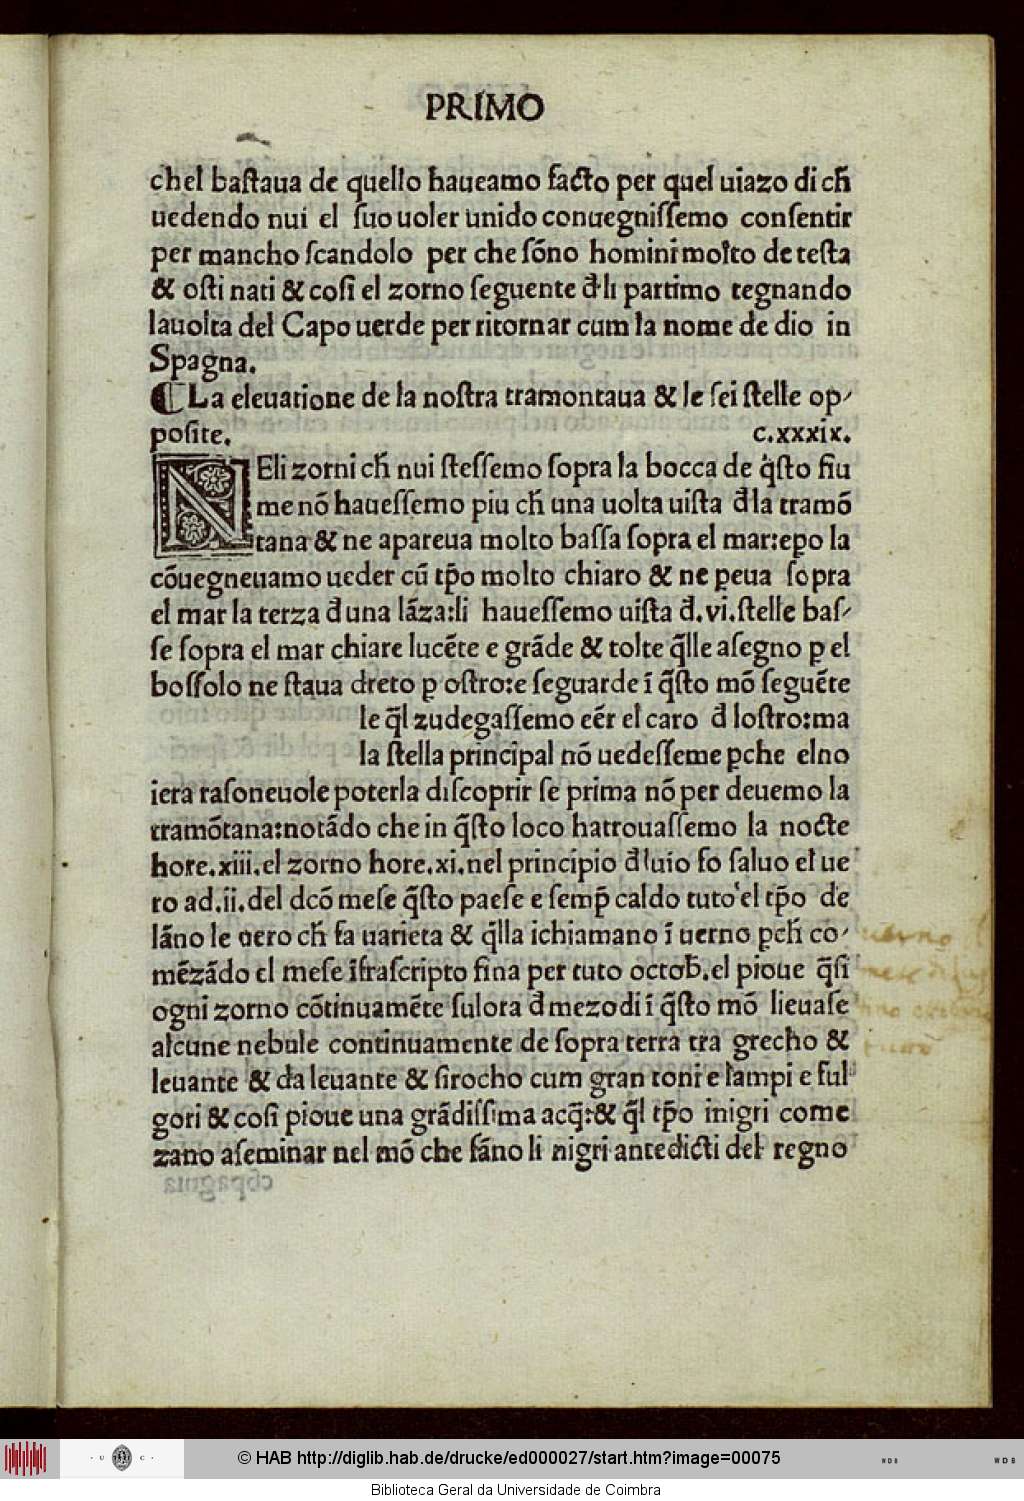 PRIMO
chel bastaua de quello haueamo facto per quel uiazo di ch̄
uedendo nui el suo uoler unido conuegnissemo consentir
per mancho scandolo per che sōno homini molto de testa
& osti nati & cosi el zorno seguente đ li partimo tegnando
lauolta del Capo uerde per ritornar cum la nome de dio in
Spagna.
¶ La eleuatione de la nostra tramontaua & le sei stelle op-
posite. c.xxxix.
NEli zorni ch̄ nui stessemo sopra la bocca de q̄sto fiu
me nō hauessemo piu ch̄ una uolta uista đ la tramō
tana & ne apareua molto bassa sopra el mar:eꝑo la
cōuegneuamo ueder cū tp̄o molto chiaro & ne ꝑeua sopra
el mar la terza đ una lāza:li hauessemo uista đ.vi.stelle bas-
se sopra el mar chiare lucēte e grāde & tolte q̄lle asegno ꝑ el
bossolo ne staua dreto ꝑ ostro:e seguarde ī q̄sto mō seguēte
le q̄l zudegassemo eēr el caro đ lostro:ma
la stella principal nō uedesseme ꝑche elno
iera rasoneuole poterla discoprir se prima nō per deuemo la
tramōtana:notādo che in q̄sto loco hatrouassemo la nocte
hore.xiii.el zorno hore.xi.nel principio đ luio fo saluo el ue
ro ad.ii.del dcō mese q̄sto paese e semp̄ caldo tuto el tp̄o de
lāno le uero ch̄ fa uarieta & q̄lla ichiamano ī uerno ꝑch̄ co-
mēzādo el mese īfrascripto fina per tuto octob̄.el pioue q̄si
ogni zorno cōtinuamēte sulora đ mezodi ī q̄sto mō lieuase
alcune nebule continuamente de sopra terra tra grecho &
leuante & da leuante & sirocho cum gran toni e lampi e ful
gori & cosi pioue una grādissima acq̄:& q̄l tp̄o inigri come
zano aseminar nel mō che fāno li nigri antedicti del regno
uerno
© HAB http://diglib.hab.de/drucke/ed000027/start.htm?image=00075
U C
WDB
WDB
Biblioteca Geral da Universidade de Coimbra